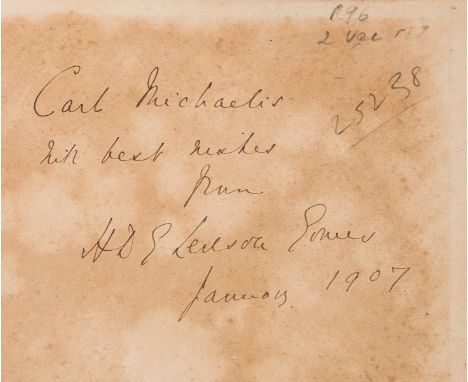 R96
2 vol
25238
Carl Michaelis
with best wishes
from
H D G Leveson Gower
January 1907